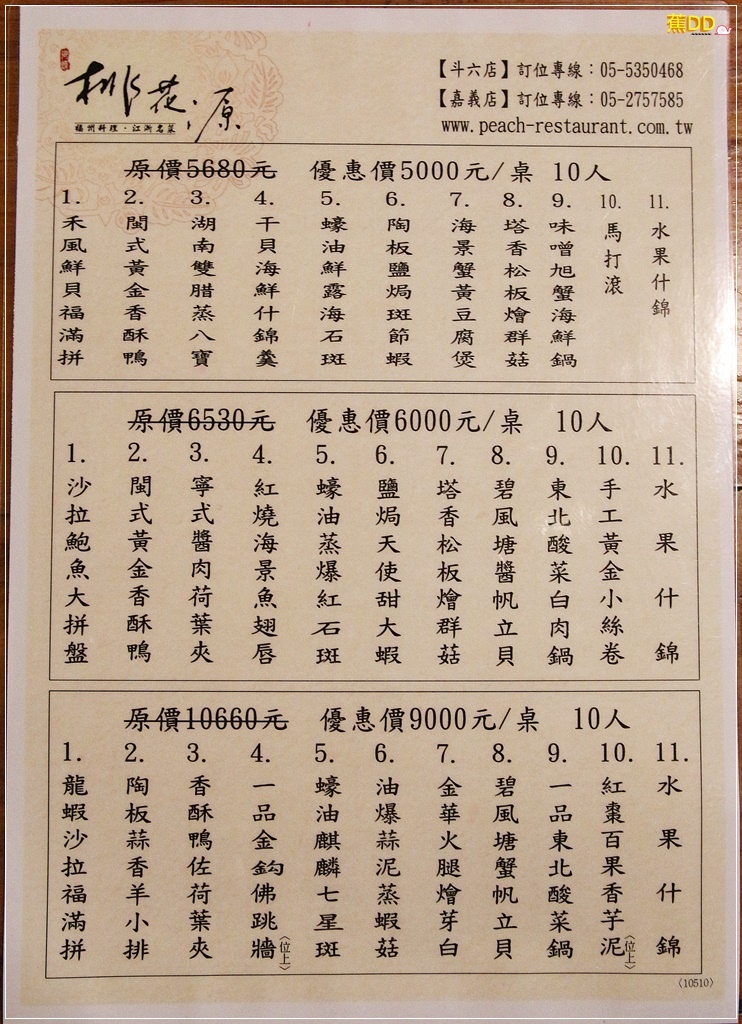 蕉DD
桃花源
福州料理·江浙名菜
【斗六店】訂位專線：05-5350468
【嘉義店】訂位專線：05-2757585
www.peach-restaurant.com.tw
原價5680元 優惠價5000元/桌 10人
1. 禾風鮮貝福滿拼
2. 閩式黃金香酥鴨
3. 湖南雙腊蒸八寶
4. 干貝海鮮什錦羹
5. 蠔油鮮露海石斑
6. 陶板鹽焗斑節蝦
7. 海景蟹黃豆腐煲
8. 塔香松板燴群菇
9. 味噌旭蟹海鮮鍋
10. 馬打滾
11. 水果什錦
原價6530元 優惠價6000元/桌 10人
1. 沙拉鮑魚大拼盤
2. 閩式黃金香酥鴨
3. 寧式醬肉荷葉夾
4. 紅燒海景魚翅唇
5. 蠔油蒸爆紅石斑
6. 鹽焗天使甜大蝦
7. 塔香松板燴群菇
8. 碧風塘醬帆立貝
9. 東北酸菜白肉鍋
10. 手工黃金小絲卷
11. 水果什錦
原價10660元 優惠價9000元/桌 10人
1. 龍蝦沙拉福滿拼
2. 陶板蒜香羊小排
3. 香酥鴨佐荷葉夾
4. 一品金鈎佛跳牆〈位上〉
5. 蠔油麒麟七星斑
6. 油爆蒜泥蒸蝦菇
7. 金華火腿燴芽白
8. 碧風塘蟹帆立貝
9. 一品東北酸菜鍋
10. 紅棗百果香芋泥〈位上〉
11. 水果什錦
〈10510〉